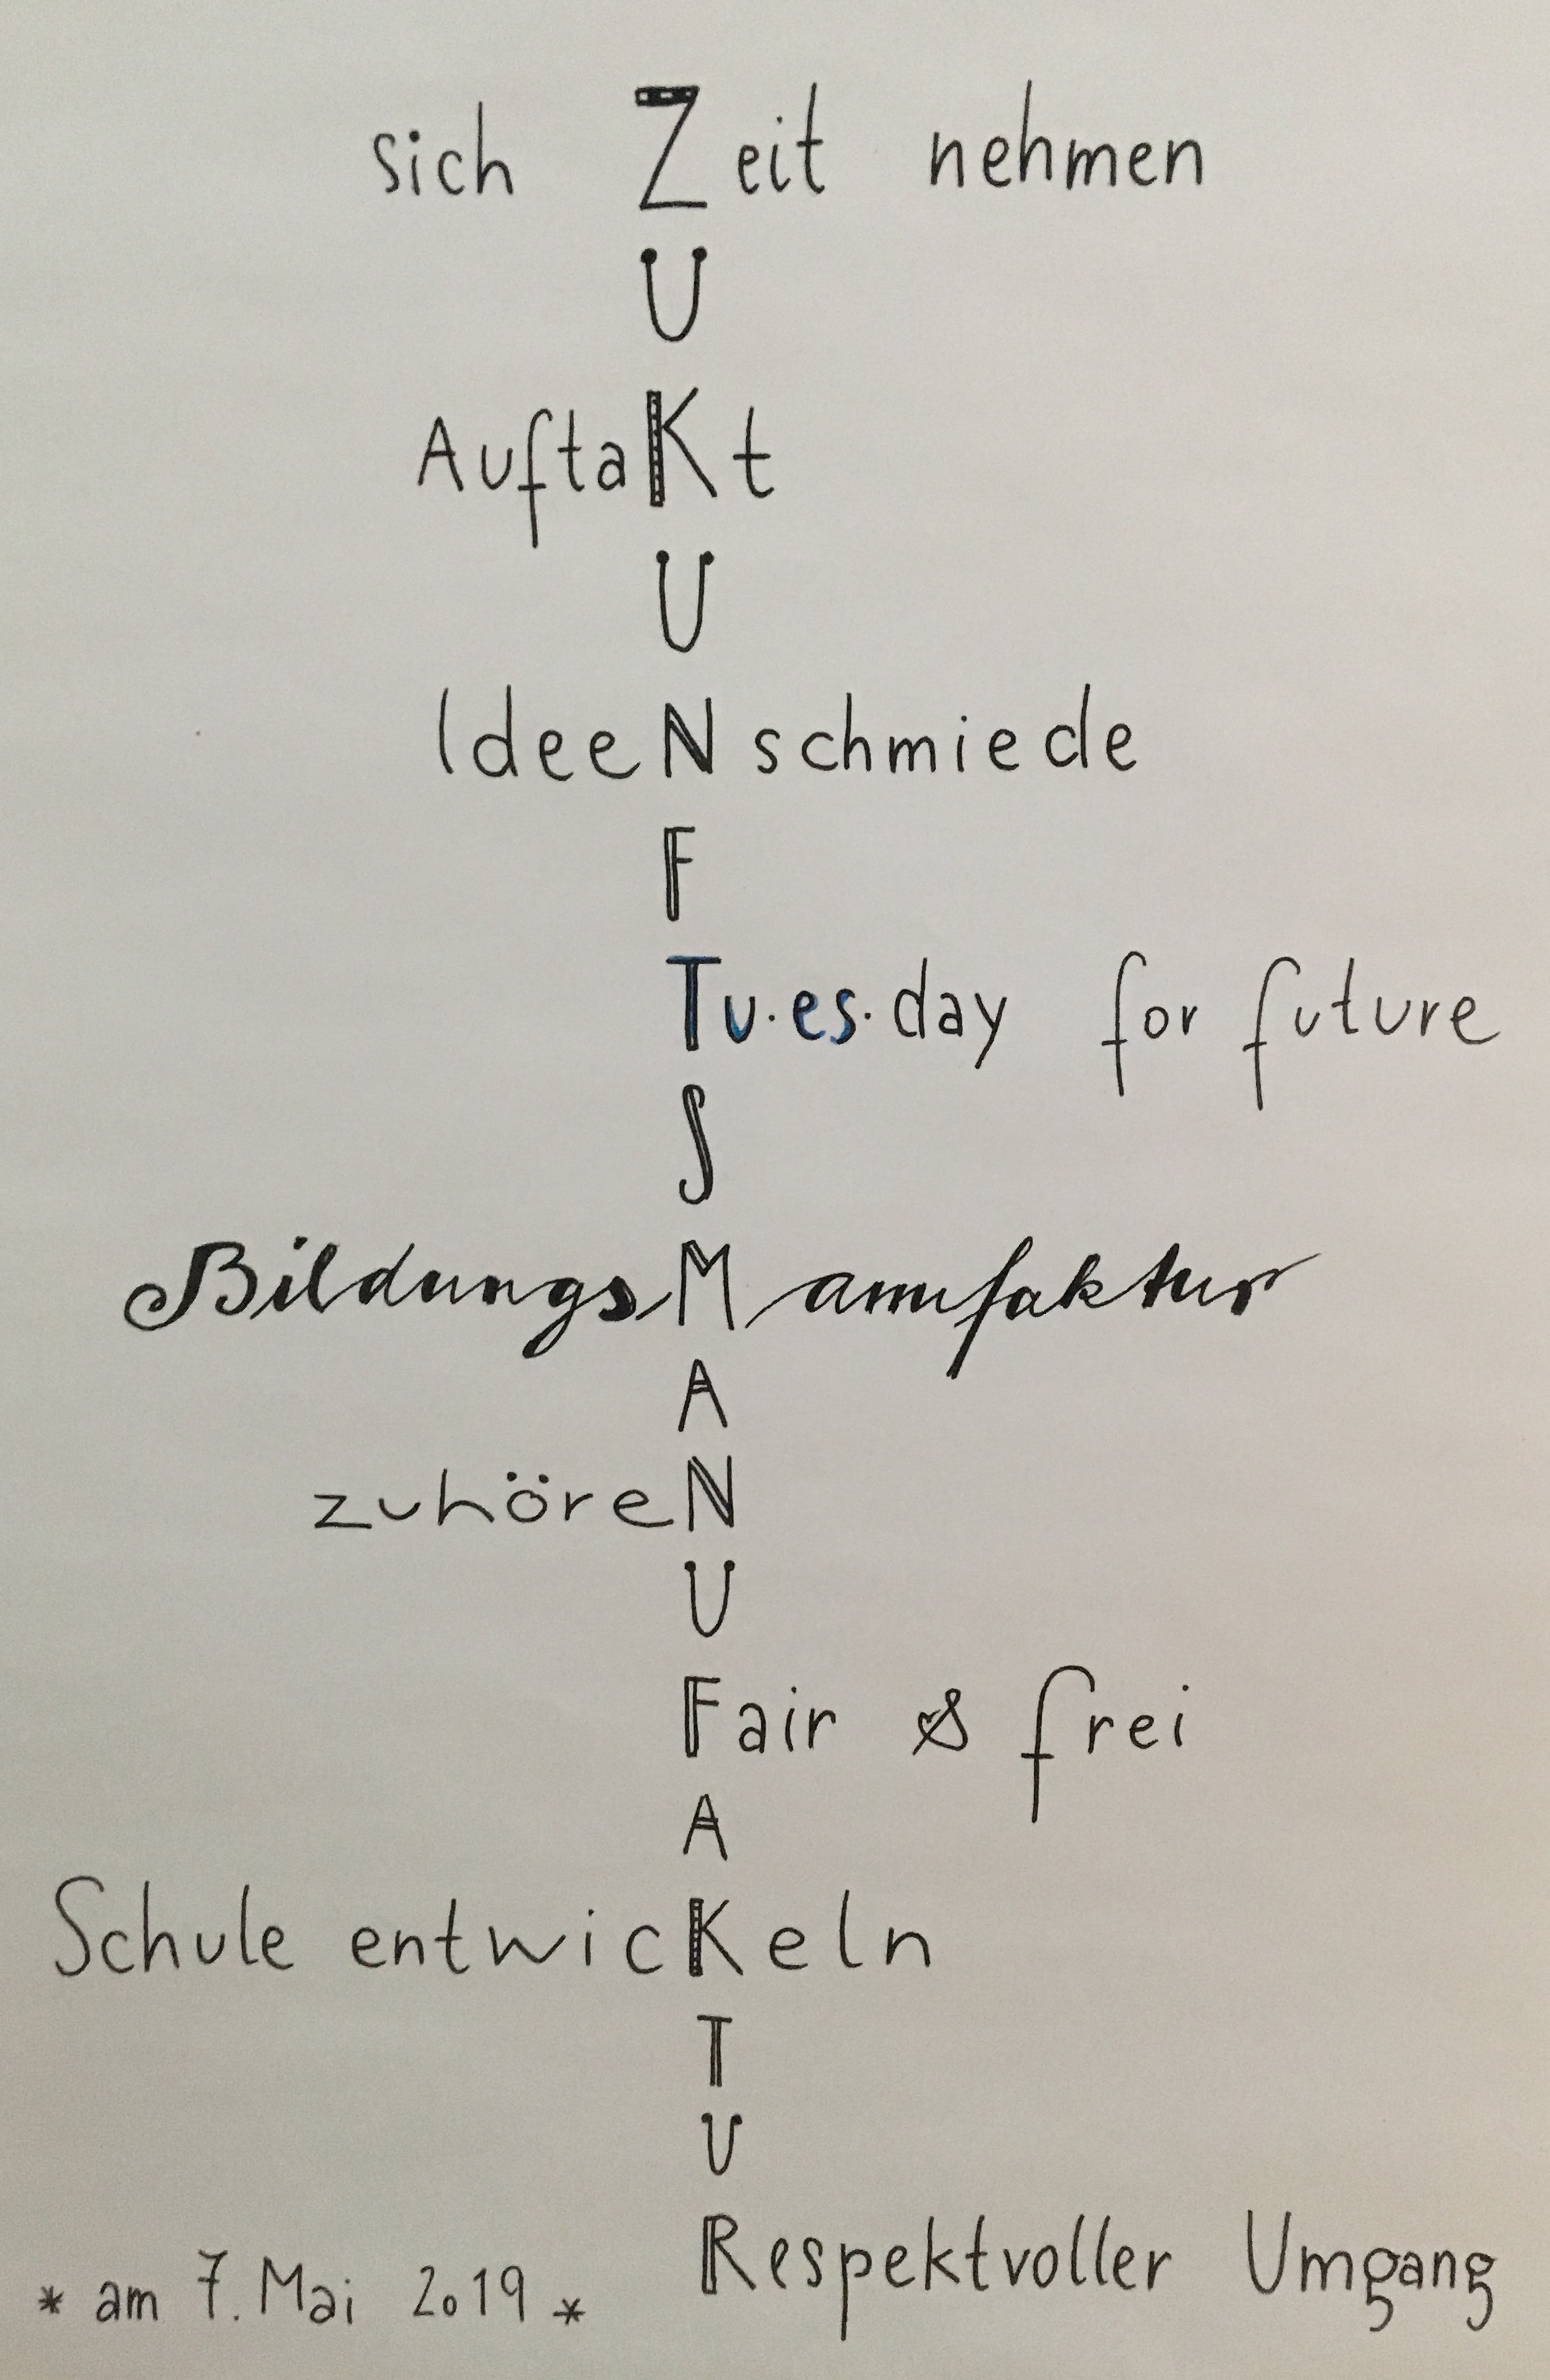 sich Zeit nehmen
U
AuftaKt
U
IdeeNschmiede
F
Tu·es·day for future
S
BildungsManufaktur
A
zuhöreN
U
Fair & frei
A
Schule entwicKeln
T
U
Respektvoller Umgang
* am 7. Mai 2019 *